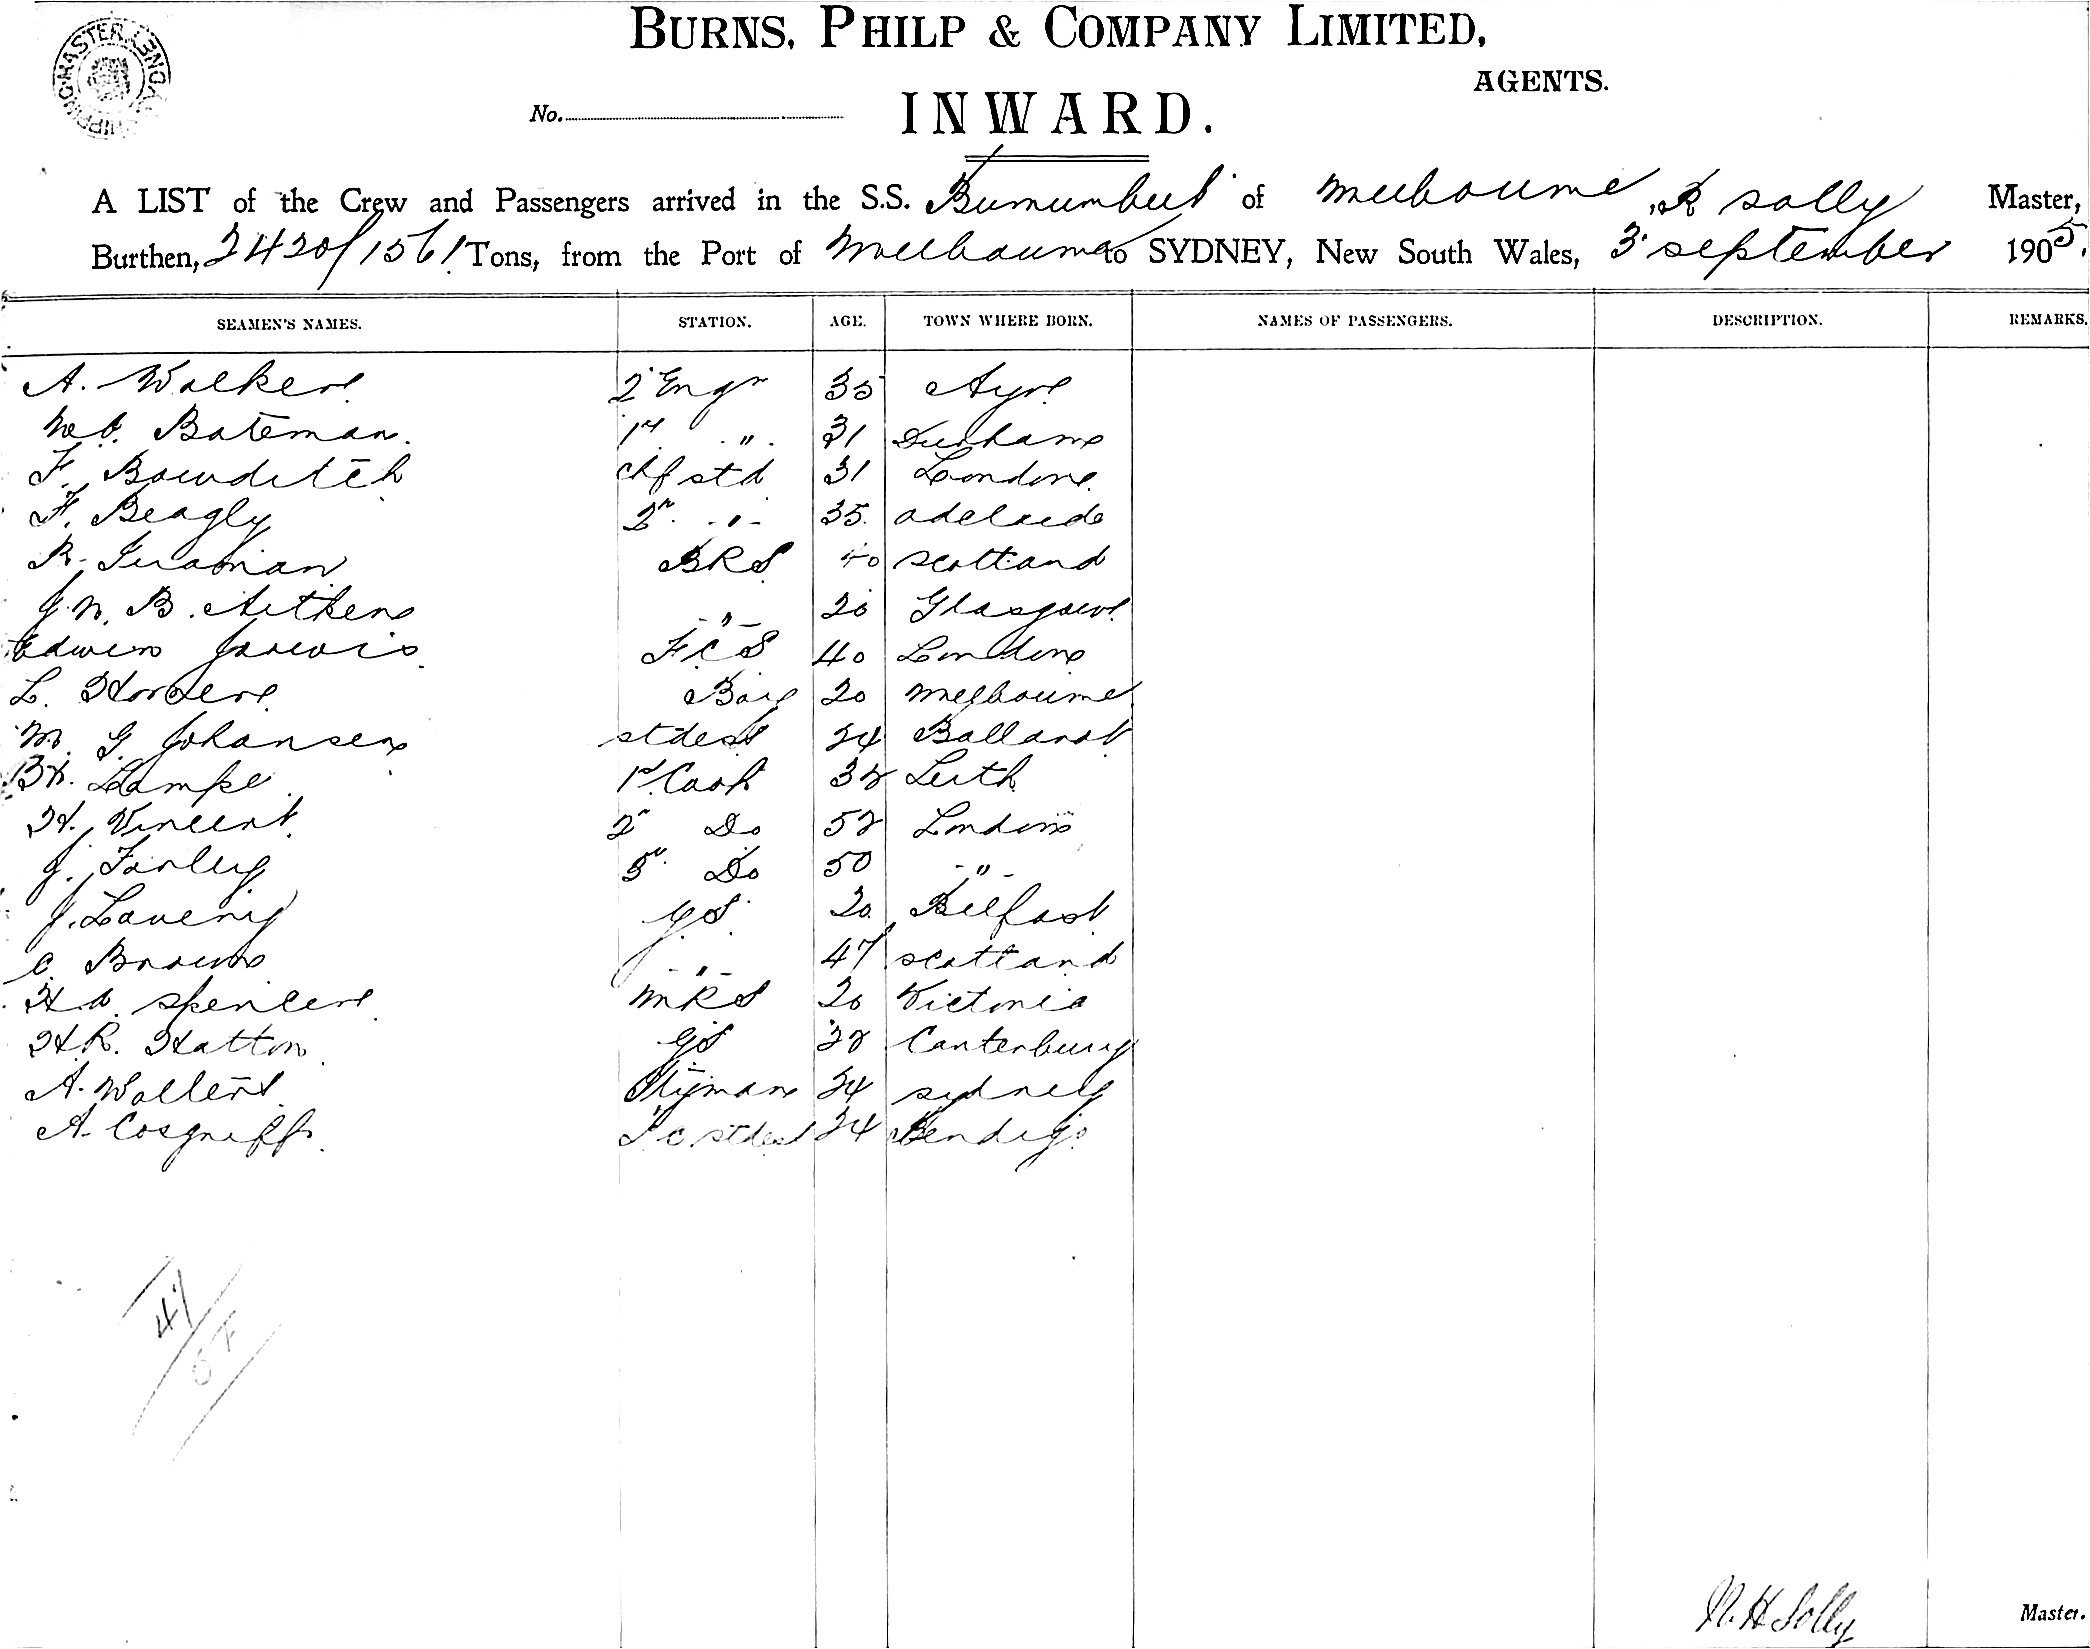 BURNS, PHILP & COMPANY LIMITED,
AGENTS.
SHIPPING MASTER
No.
INWARD.
A LIST of the Crew and Passengers arrived in the S.S. Burrumbeet of Melbourne, R Solly Master,
Burthen, 2420/1561 Tons, from the Port of Melbourne to SYDNEY, New South Wales, 3 September 1905.
SEAMEN'S NAMES. STATION. AGE. TOWN WHERE BORN. NAMES OF PASSENGERS. DESCRIPTION. REMARKS.
A. Walker 2 Engr 35 Ayr
Bateman. " 31 Durham
F. Bowditch chf std 31 London
F. Beagly 2 " 35 Adelaide
R. BRS 40 Scotland
J. W. B. Aitken " 20 Glasgow
Edwin Jarvis FCS 40 London
L. Boy 20 Melbourne
M. G. Johansen stdess 24 Ballarat
Lampe 1st Cook 32 Leith
H. Vincent 2 Do 52 London
J. Farley 3 Do 50 "
J. Lavery GS 20 Belfast
C. Brown " 47 Scotland
Spencer MRS 20 Victoria
H.R. Hatton GS 22 Canterbury
A. Wollert 24 Sydney
A. Cosgriff stdess 24 Bendigo
47
R. H Solly Master.